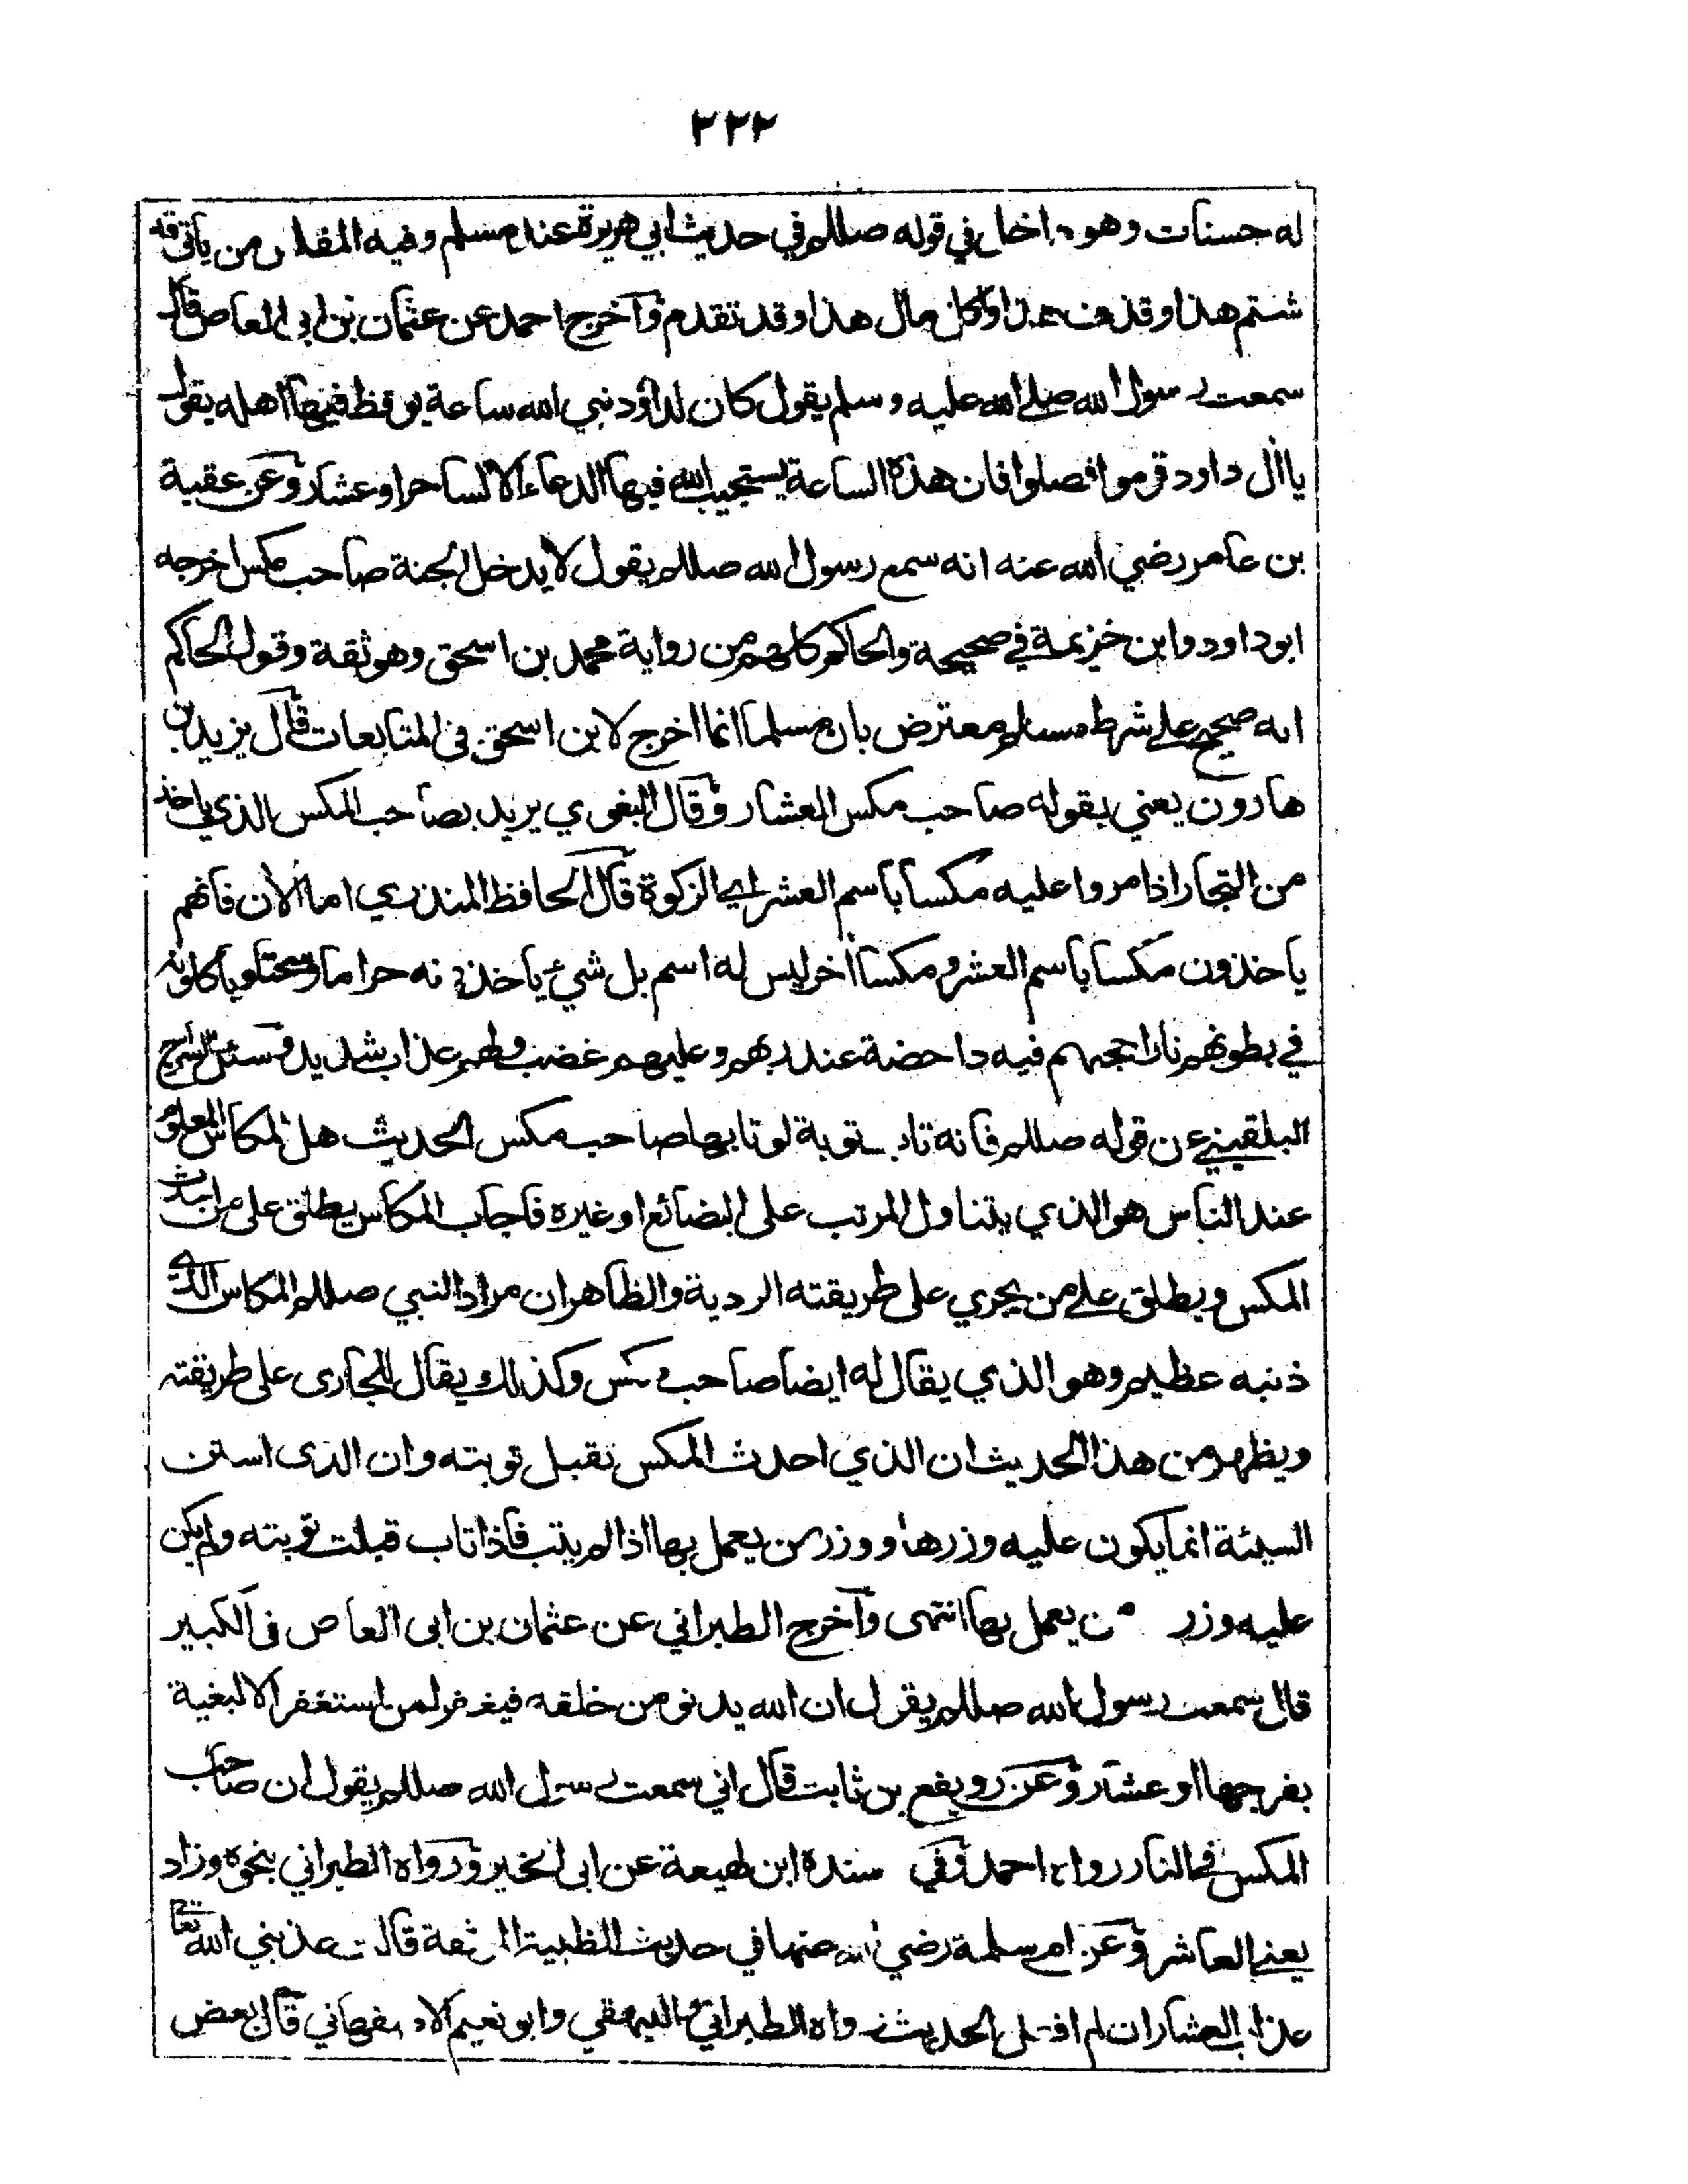 ٢٢٢
له حسنات وهو داخل في قوله صللم في حديث ابي هريرة عند مسلم وفيه المفلس من ياتي قد
شتم هذا وقذف هذا واكل مال هذا وقد تقدم وآخرج احمد عن عثمان بن ابي العاص قال
سمعت رسول الله صلى الله عليه وسلم يقول كان لداود نبي الله ساعة يوقظ فيها اهله يقول
ياأل داود قوموا فصلوا فان هذه الساعة يستجيب الله فيها الدعاء الا لساحر او عشار وعن عقبة
بن عامر رضي الله عنه انه سمع رسول الله صللم يقول لا يدخل الجنة صاحب مكس اخرجه
ابوداود وابن خزيمة في صحيحة والحاكم كلهم من رواية محمد بن اسحق وهو ثقة وقول الحاكم
انه صحيح على شرط مسلم معترض بان مسلما انما اخرج لابن اسحق في المتابعات قال يزيد بن
هارون يعني بقوله صاحب مكس العشار وقال البغوي يريد بصاحب المكس الذي ياخذ
من التجار اذا مروا عليه مكسا باسم العشر اي الزكوة قال الحافظ المنذري اما الأن فانهم
ياخذون مكسا باسم العشر ومكسا أخر ليس له اسم بل شيء ياخذونه حراما وسحتا وياكلونه
في بطونهم نارا حجتهم فيه داحضة عند ربهم وعليهم غضب ولهم عذاب شديد وسئل السراج
البلقيني عن قوله صللم فانه تاب توبة لو تابها صاحب مكس الحديث هل المكاس المعلوم
عند الناس هو الذي يتناول المرتب على البضائع او غيره فاجاب المكاس يطلق على من احدث
المكس ويطلق على من يجري على طريقته الردية والظاهر ان مراد النبي صللم المكاس الذي
ذنبه عظيم وهو الذي يقال له ايضا صاحب مكس وكذلك يقال للجاري على طريقته
ويظهر من هذا الحديث ان الذي احدث المكس تقبل توبته وان الذى استن
السيئة انما يكون عليه وزرها ووزر من يعمل بها اذا لم يتب فاذا تاب قبلت توبته ولم يكن
عليه وزر من يعمل بها انتهى وآخرج الطبراني عن عثمان بن ابى العاص فى الكبير
قال سمعت رسول الله صللم يقول ان الله يدنو من خلقه فيغفر لمن استغفر الا لبغية
بفرجها او عشار وعن رويفع بن ثابت قال اني سمعت رسول الله صللم يقول ان صاحب
المكس في النار رواه احمد وفي سنده ابن لهيعة عن ابى الخير ورواه الطبراني بنحوه وزاد
يعني العاشر وعن ام سلمة رضي الله عنها في حديث الظبية قالت عذبني الله تعا
عذاب العشار ان لم افعل الحديث رواه الطبراني والبيهقي وابو نعيم الاصفهاني قال بعض